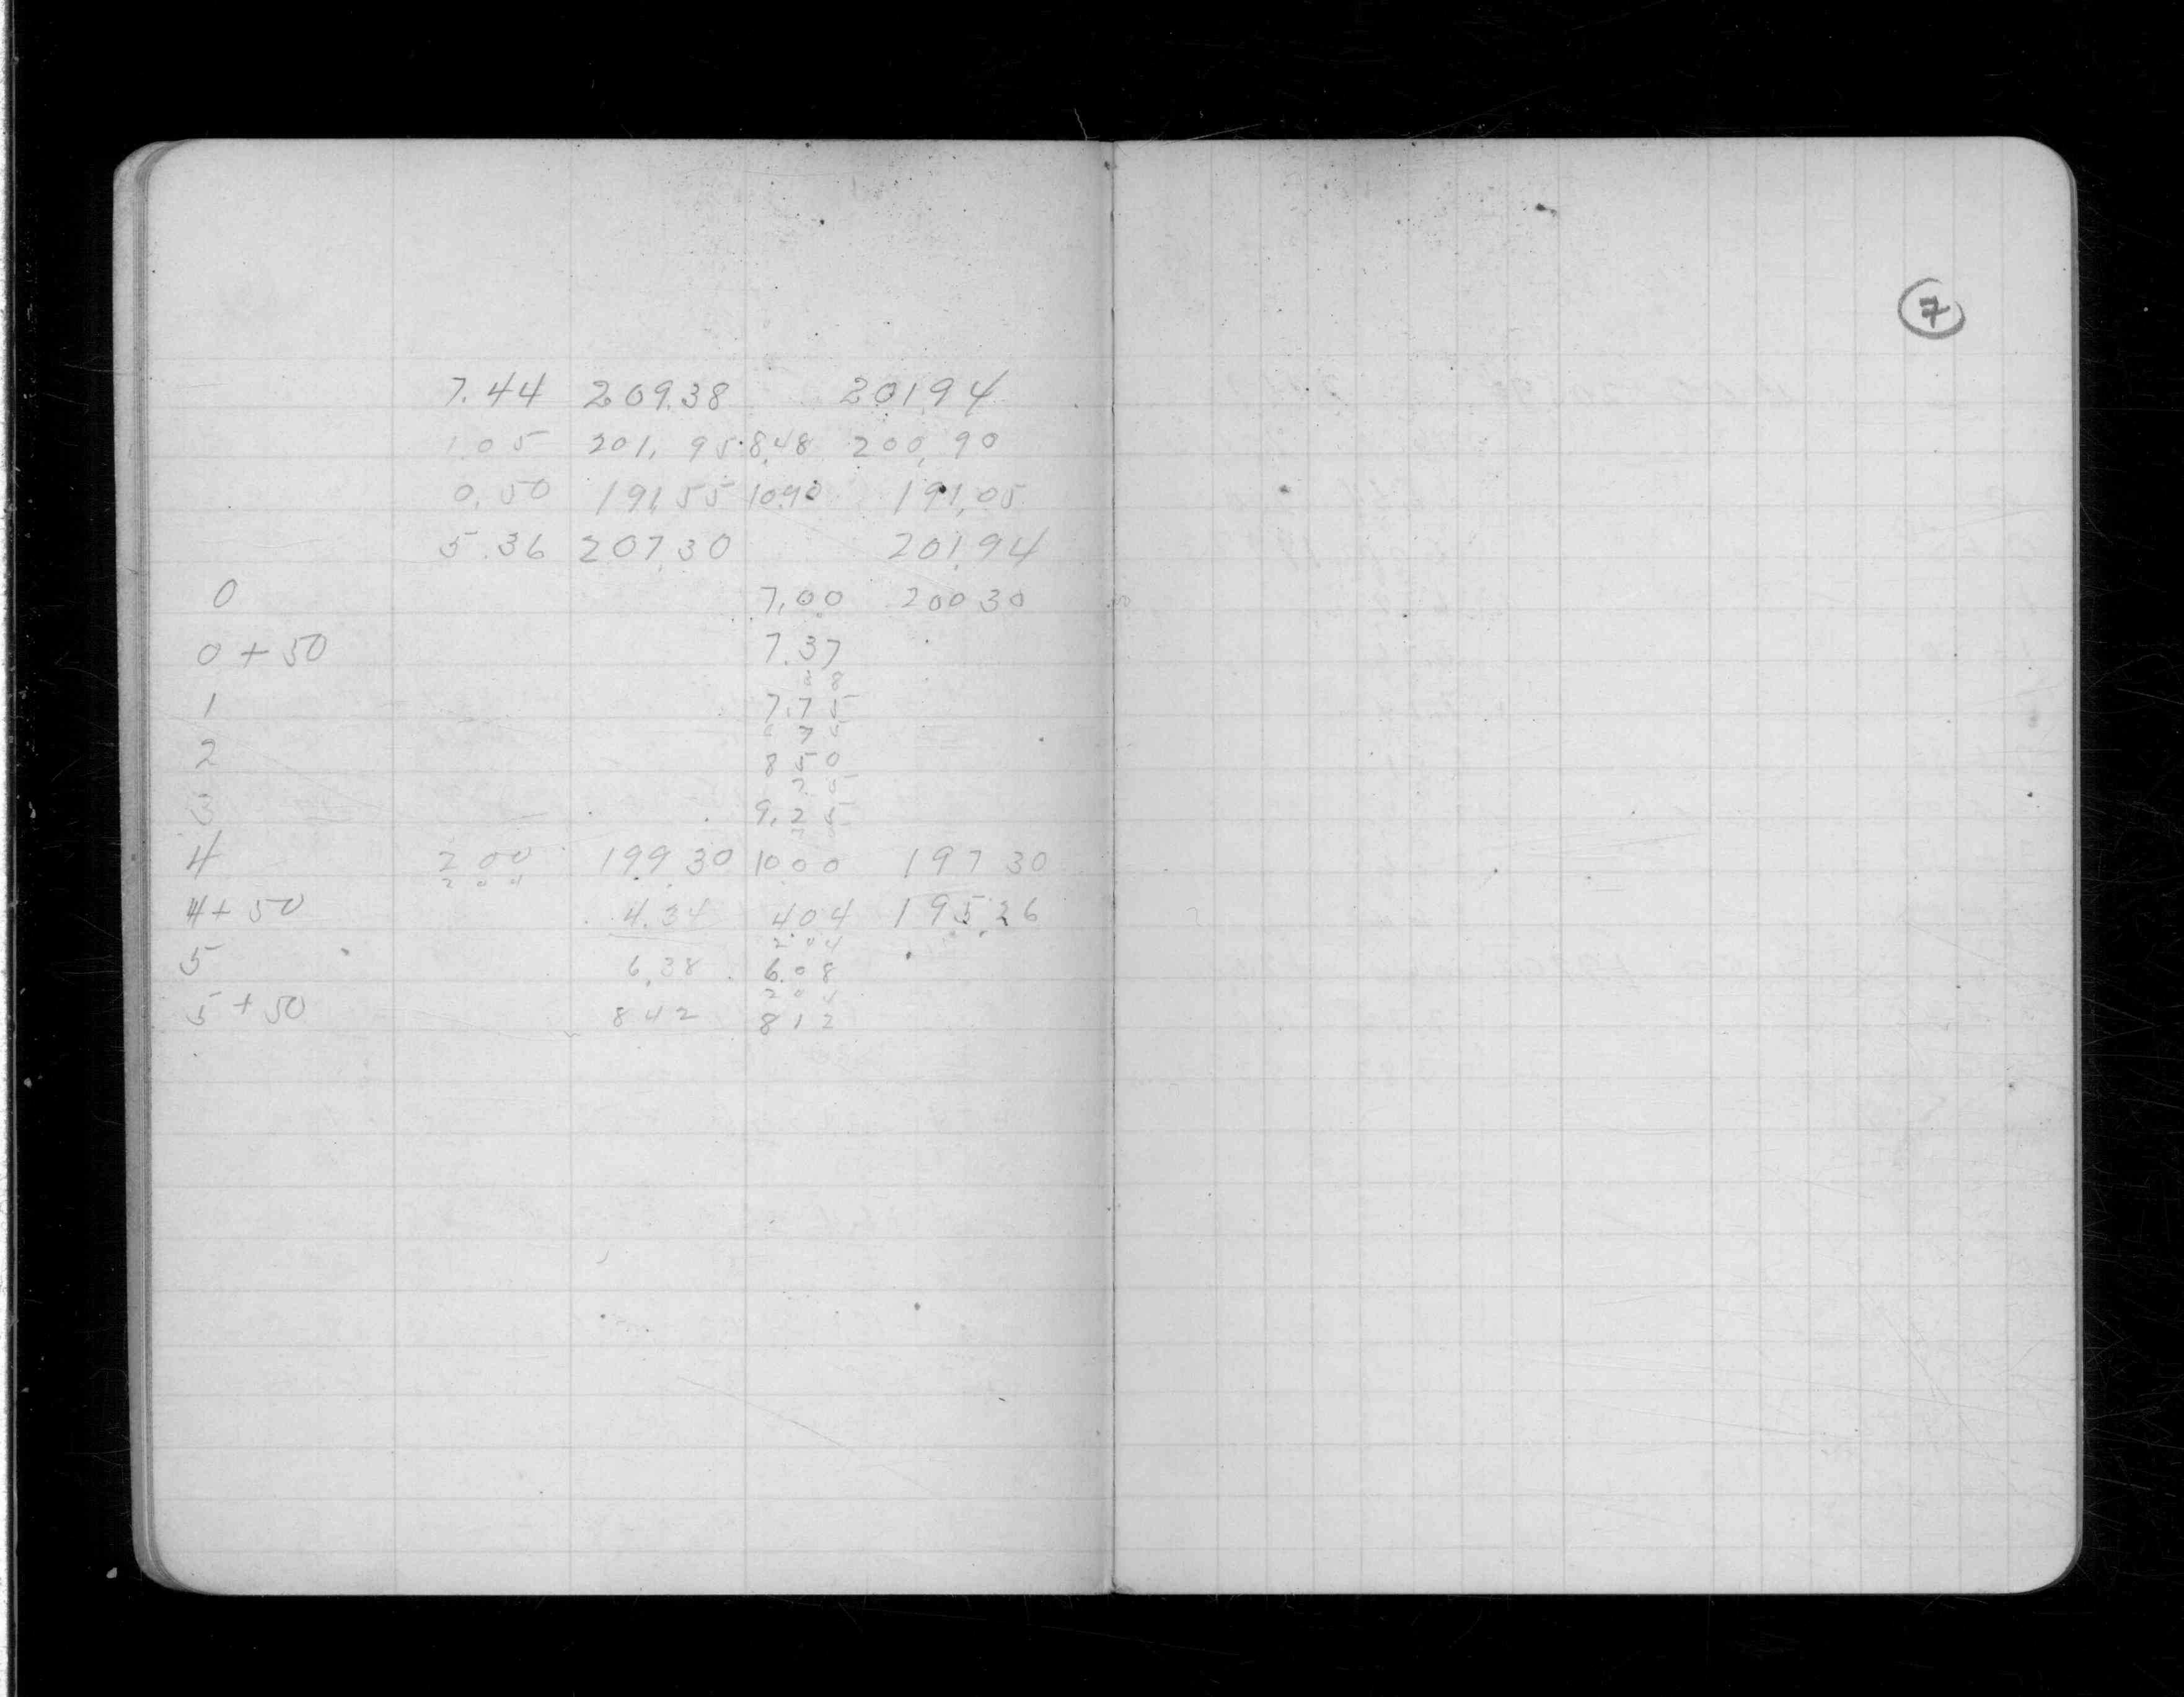 7
7.44 209.38 201.94
1.05 201.95 8.48 200.90
0.50 191.55 10.90 191.05
5.36 207.30 201.94
0 7.00 200 30
0 + 50 7.37
1 7.75
2 8 50
3 9.25
4 2 00 199 30 10 00 197 30
2 04
4 + 50 4.34 4 04 195.26
2 04
5 6.38 6.08
2 04
5 + 50 8 42 8 12